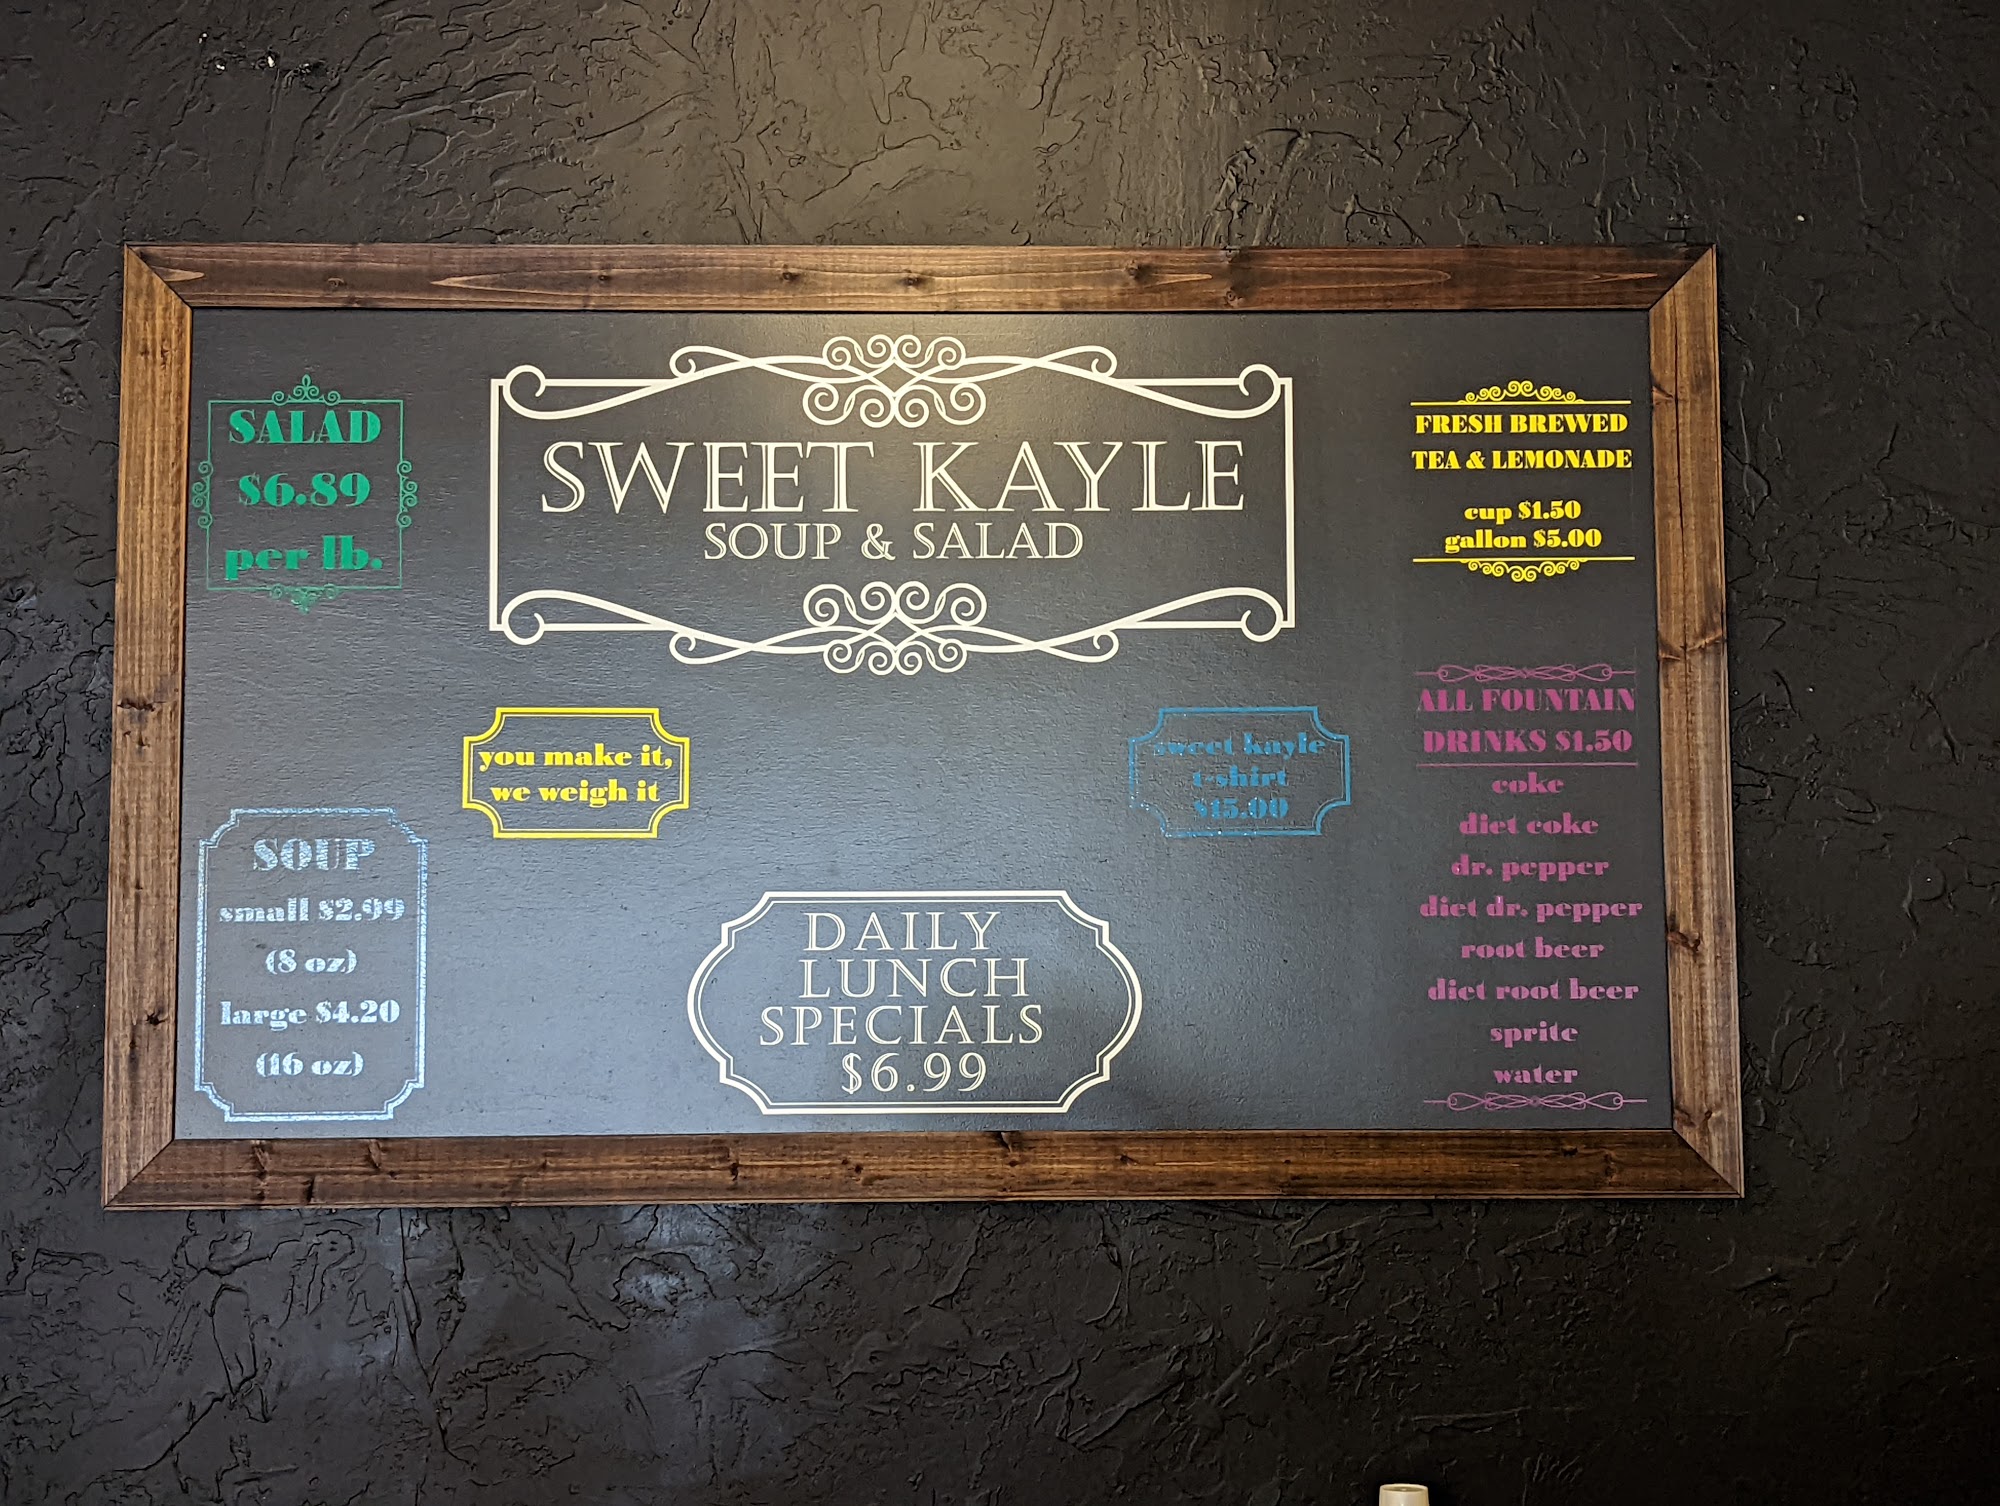 SALAD
$6.89
per lb.
SWEET KAYLE
SOUP & SALAD
FRESH BREWED
TEA & LEMONADE
cup $1.50
gallon $5.00
you make it,
we weigh it
sweet kayle
t-shirt
$15.00
ALL FOUNTAIN
DRINKS $1.50
coke
diet coke
dr. pepper
diet dr. pepper
root beer
diet root beer
sprite
water
SOUP
small $2.99
(8 oz)
large $4.20
(16 oz)
DAILY
LUNCH
SPECIALS
$6.99